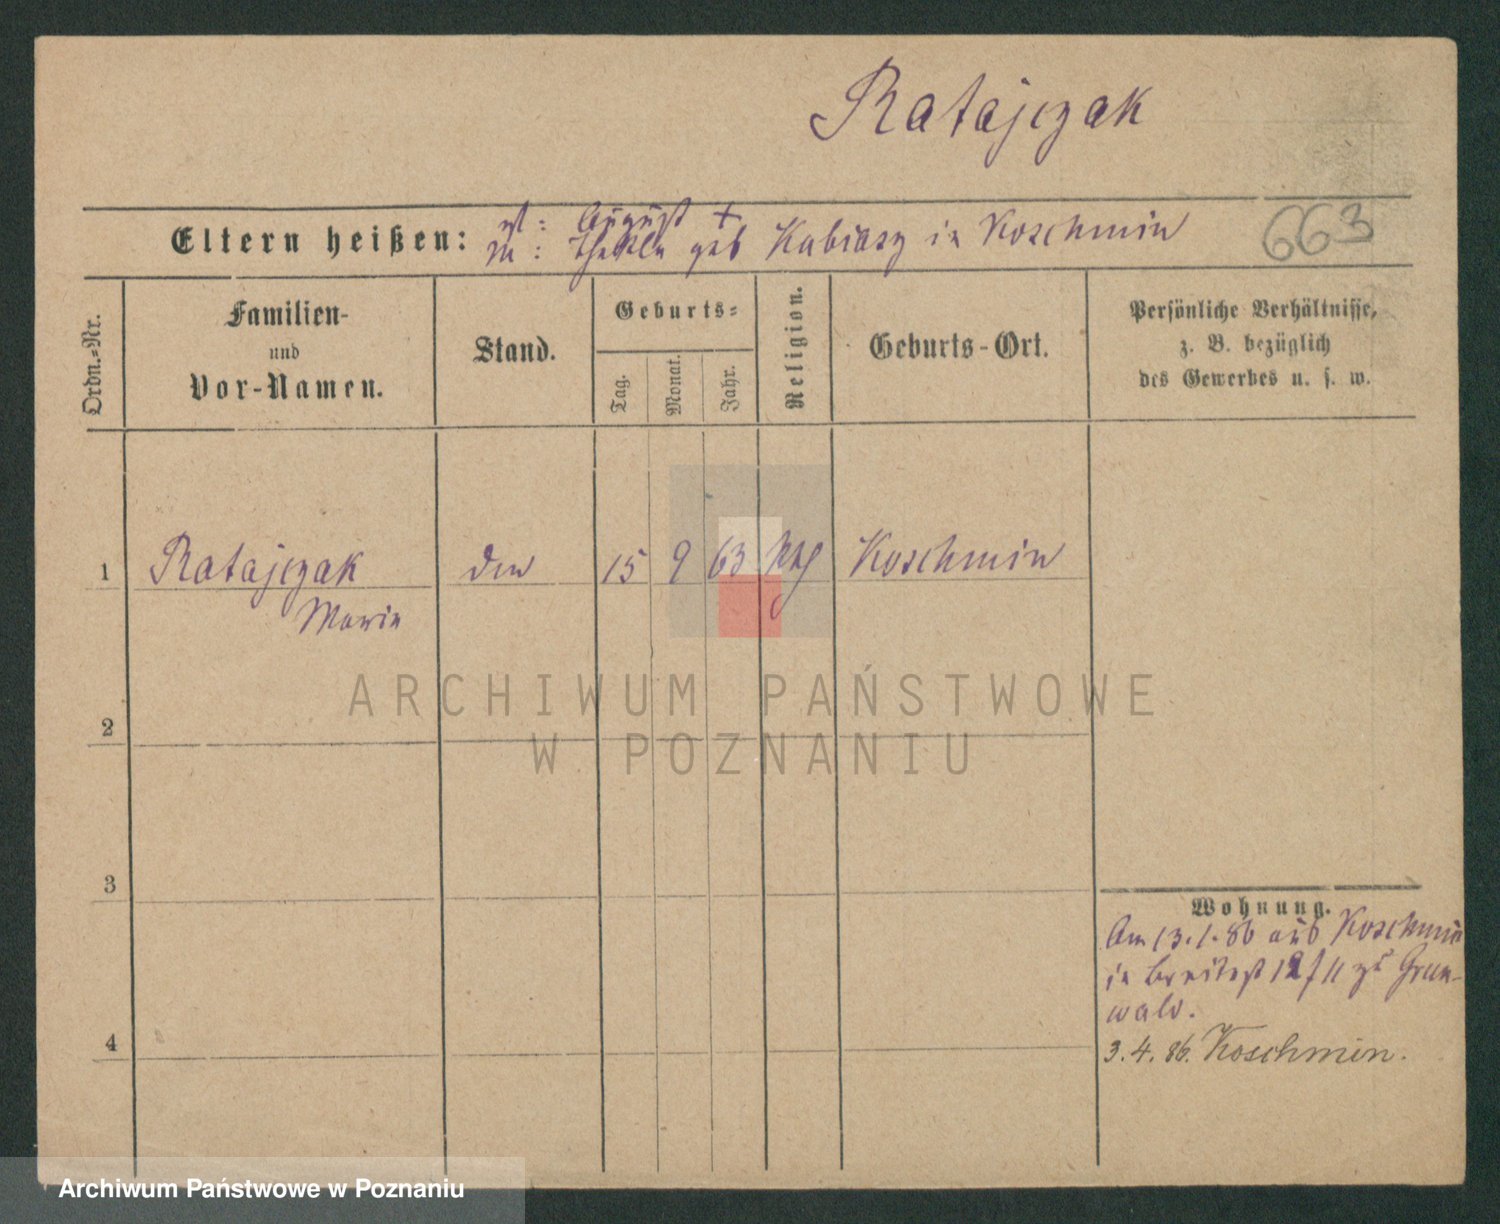 Ratajczak
663
Eltern heißen:
V: August +
M: Thekla geb Kubiasz in Koschmin
Ordn.-Nr.
Familien-
und
Vor-Namen.
Stand.
Geburts-
Tag.
Monat.
Jahr.
Religion.
Geburts-Ort.
Persönliche Verhältnisse,
z. B. bezüglich
des Gewerbes u. s. w.
1 Ratajczak 15 9 63 Koschmin
Maria
2
3
4
Wohnung.
Am 13.1.86 aus Koschmin
in Breitest 12 zu Grun-
wald.
3.4.86. Koschmin.
ARCHIWUM PAŃSTWOWE
W POZNANIU
Archiwum Państwowe w Poznaniu